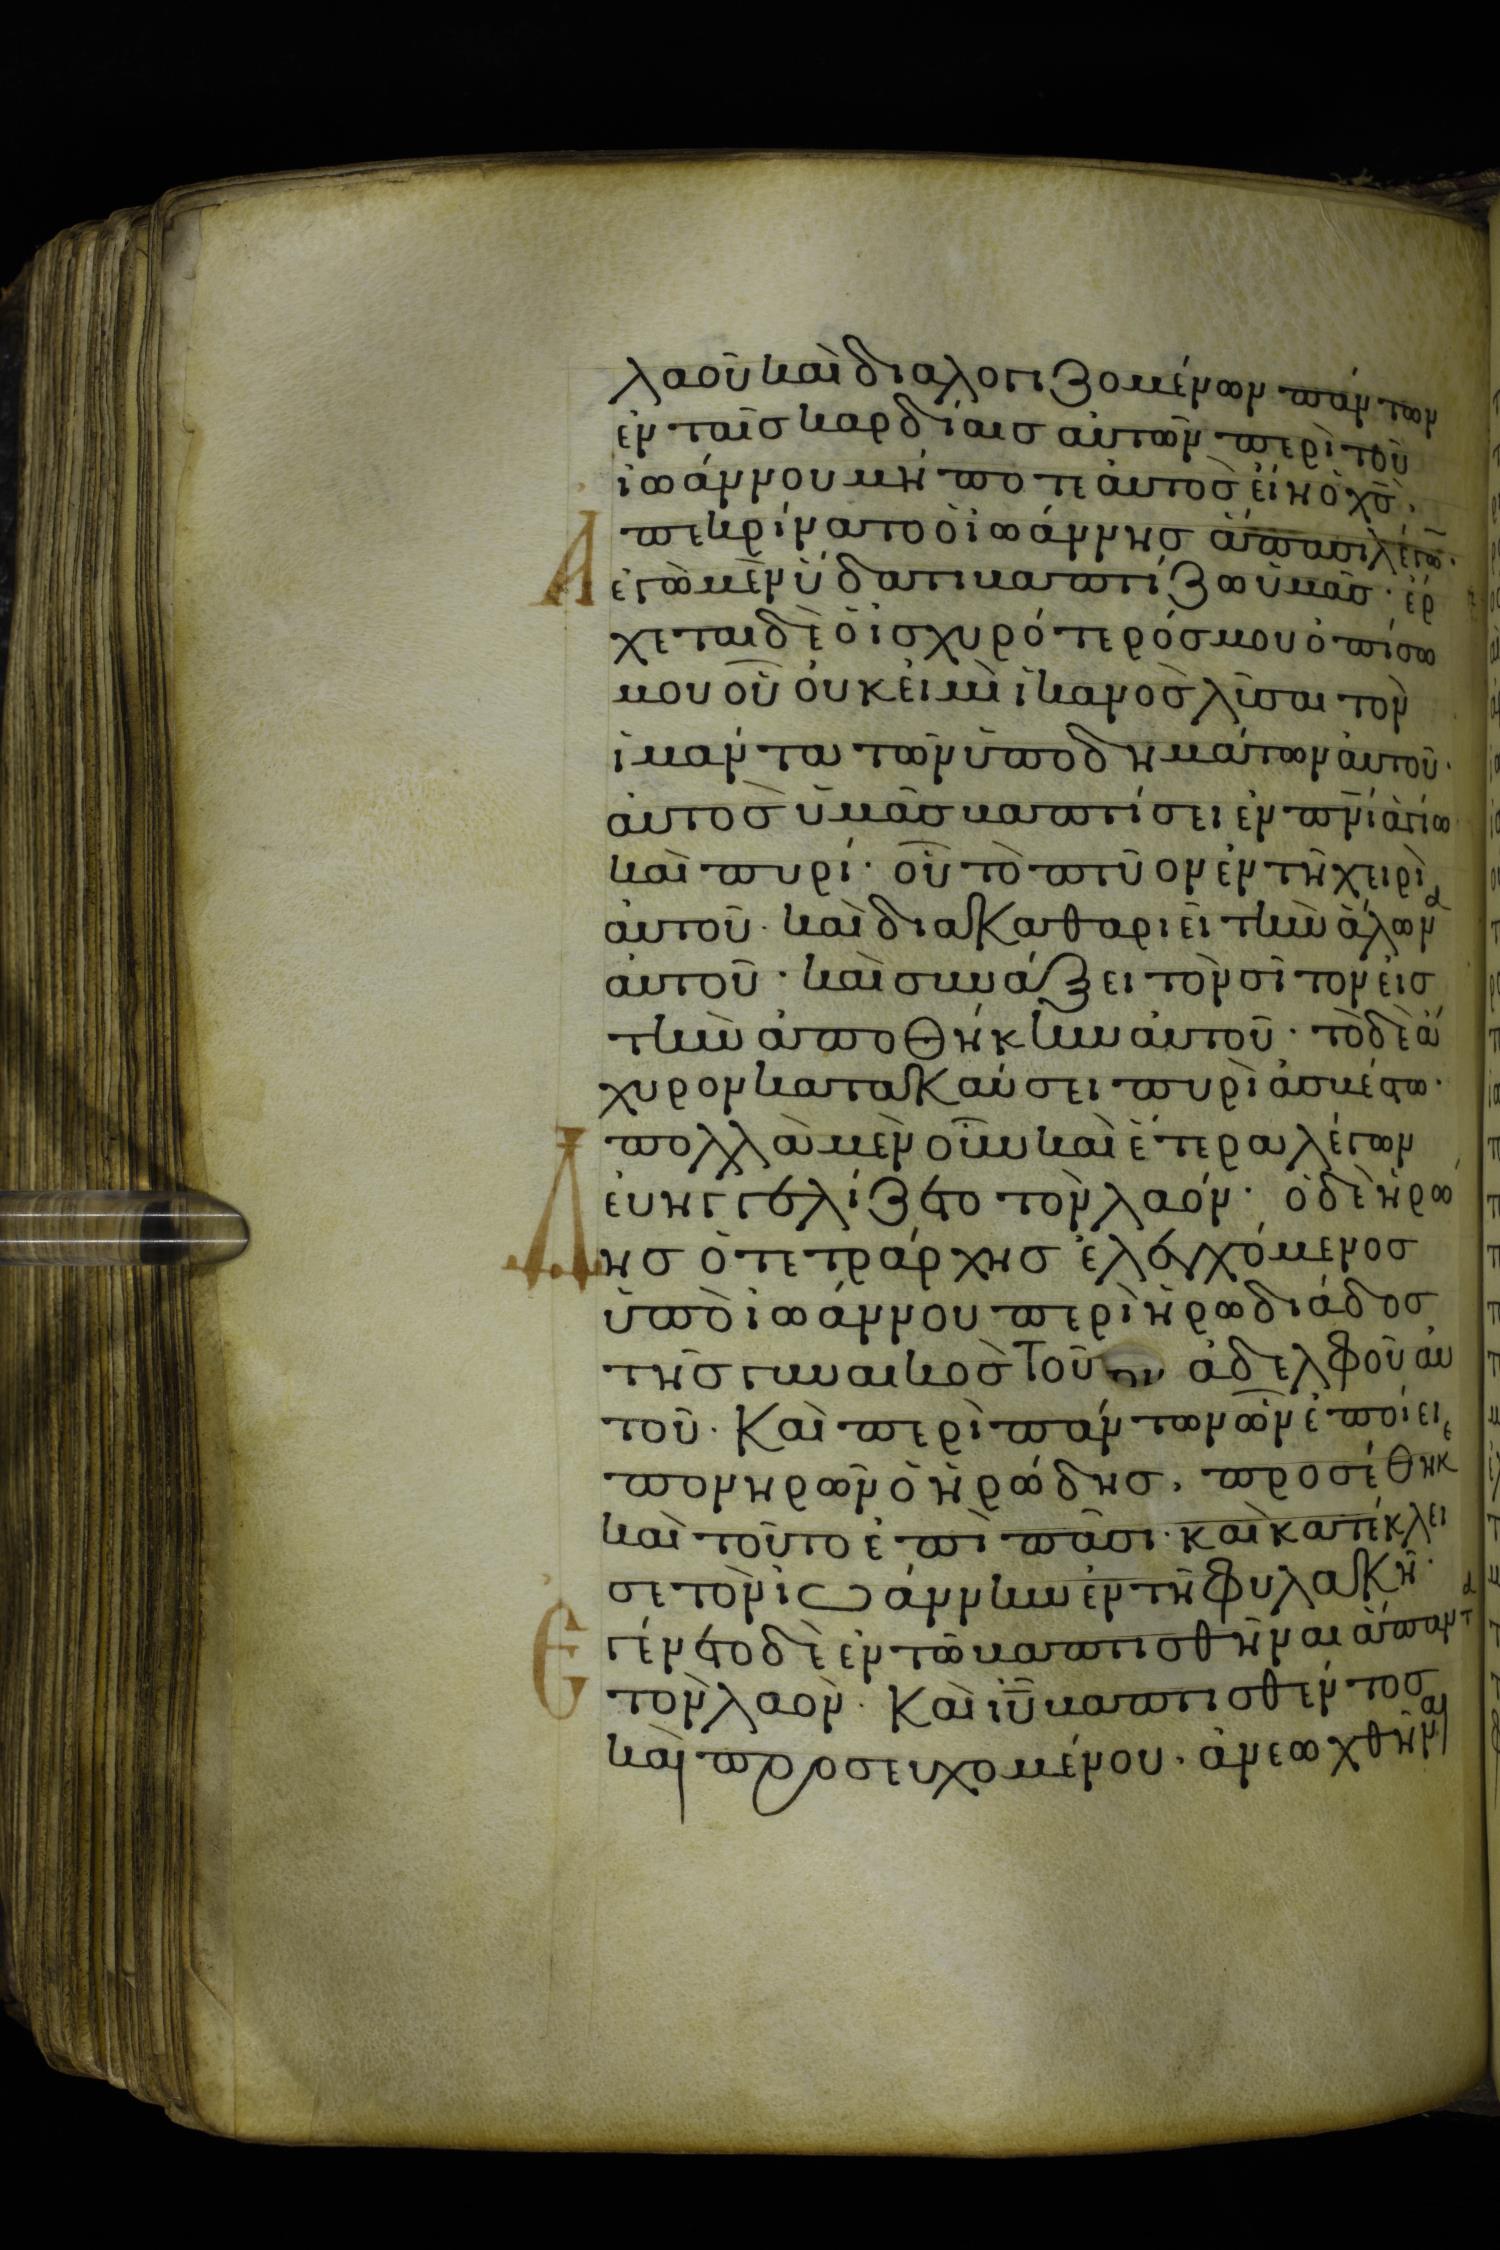 λαοῦ καὶ διαλογιζομένων πάντων
ἐν ταῖς καρδίαις αὐτῶν περὶ τοῦ
ἰωάννου μήποτε αὐτὸς εἴη ὁ χς̄.
Ἀπεκρίνατο ὁ ἰωάννης ἅπασι λέγων.
ἐγὼ μὲν ὕδατι βαπτίζω ὑμᾶς· ἔρ
χεται δὲ ὁ ἰσχυρότερός μου ὀπίσω
μου οὗ οὐκ εἰμὶ ἱκανὸς λῦσαι τὸν
ἱμάντα τῶν ὑποδημάτων αὐτοῦ·
αὐτὸς ὑμᾶς βαπτίσει ἐν πν̄ι ἁγίω
καὶ πυρί· οὗ τὸ πτύον ἐν τῆ χειρὶ
αὐτοῦ· καὶ διακαθαριεῖ τὴν ἅλωνα
αὐτοῦ· καὶ συνάξει τὸν σῖτον εἰς
τὴν ἀποθήκην αὐτοῦ· τὸ δὲ ἄ
χυρον κατακαύσει πυρὶ ἀσβέστω.
πολλὰ μὲν οὖν καὶ ἕτερα λέγων
εὐηγγελίζετο τὸν λαόν· ὁ δὲ ἡρώ
Δης ὁ τετράρχης ἐλεγχόμενος
ὑπὸ ἰωάννου περὶ ἡρωδιάδος
τῆς γυναικὸς τοῦ ἀδελφοῦ αὐ
τοῦ· Καὶ περὶ πάντων ὧν ἐποίει
πονηρῶν ὁ ἡρώδης, προσέθηκε
καὶ τοῦτο ἐπὶ πᾶσι· καὶ κατέκλει
σε τὸν ἰωάννην ἐν τῆ φυλακῆ·
Ἐγένετο δὲ ἐν τῶ βαπτισθῆναι ἅπαντα
τὸν λαὸν· Καὶ ιῡ βαπτισθέντος
καὶ προσευχομένου· ἀνεωχθῆναι